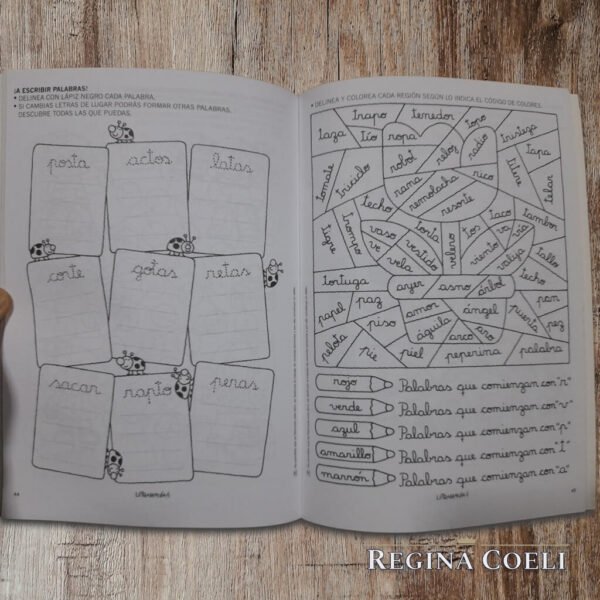 ¡A ESCRIBIR PALABRAS!
• DELINEA CON LÁPIZ NEGRO CADA PALABRA.
• SI CAMBIAS LETRAS DE LUGAR PODRÁS FORMAR OTRAS PALABRAS.
DESCUBRE TODAS LAS QUE PUEDAS.
posta actos latas
corte gotas retas
sacar rapto peras
44
• DELINEA Y COLOREA CADA REGIÓN SEGÚN LO INDICA EL CÓDIGO DE COLORES.
trapo tenedor topo
taza tío ropa radio tristeza
robot reloj tapa
tomate triciclo rama rico títere
remolacha telar
techo resorte
tigre trompo vaso torta tos taco tambor
ve vestido velero viento va vía
vela valija tallo
tortuga ayer asno árbol techo
papel paz amor ángel pan
piso águila arco aro puerta pez
pelota pie piel peperina palabra
rojo Palabras que comienzan con "r"
verde Palabras que comienzan con "v"
azul Palabras que comienzan con "p"
amarillo Palabras que comienzan con "t"
marrón Palabras que comienzan con "a"
45
REGINA COELI